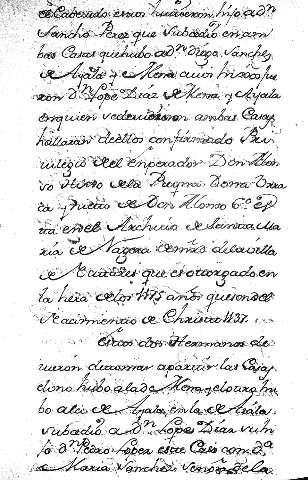 Sancho Perez que subcedio en am
bas Casas que hubo a Dn. Diego Sanchez
de Ayala y de Mena a cuio hijo
Dn. Lope Diaz de Mena y Ayala
en quien ambas Casas
hallaran de ellos confirmado Pri
vilegio del emperador Don Alon
so de la Reyna Doña Urra
ca y nieto de Don Alonso 6º es
ta en el Archivio de Santa Ma
ria de Naxera de la villa
de que es otorgado en
la hera de los 1175 años que son del
Nacimiento de Christo 1137.
Estos dos Hermanos
a partir las Casas
el uno hubo a la de Mena y el otro hu
bo a la de Ayala, en la de Ayala
subcedio a Dn. Lopez Diaz su hi
jo Dn. Pedro Lopez este Caso con Da.
Maria Sanchez de la